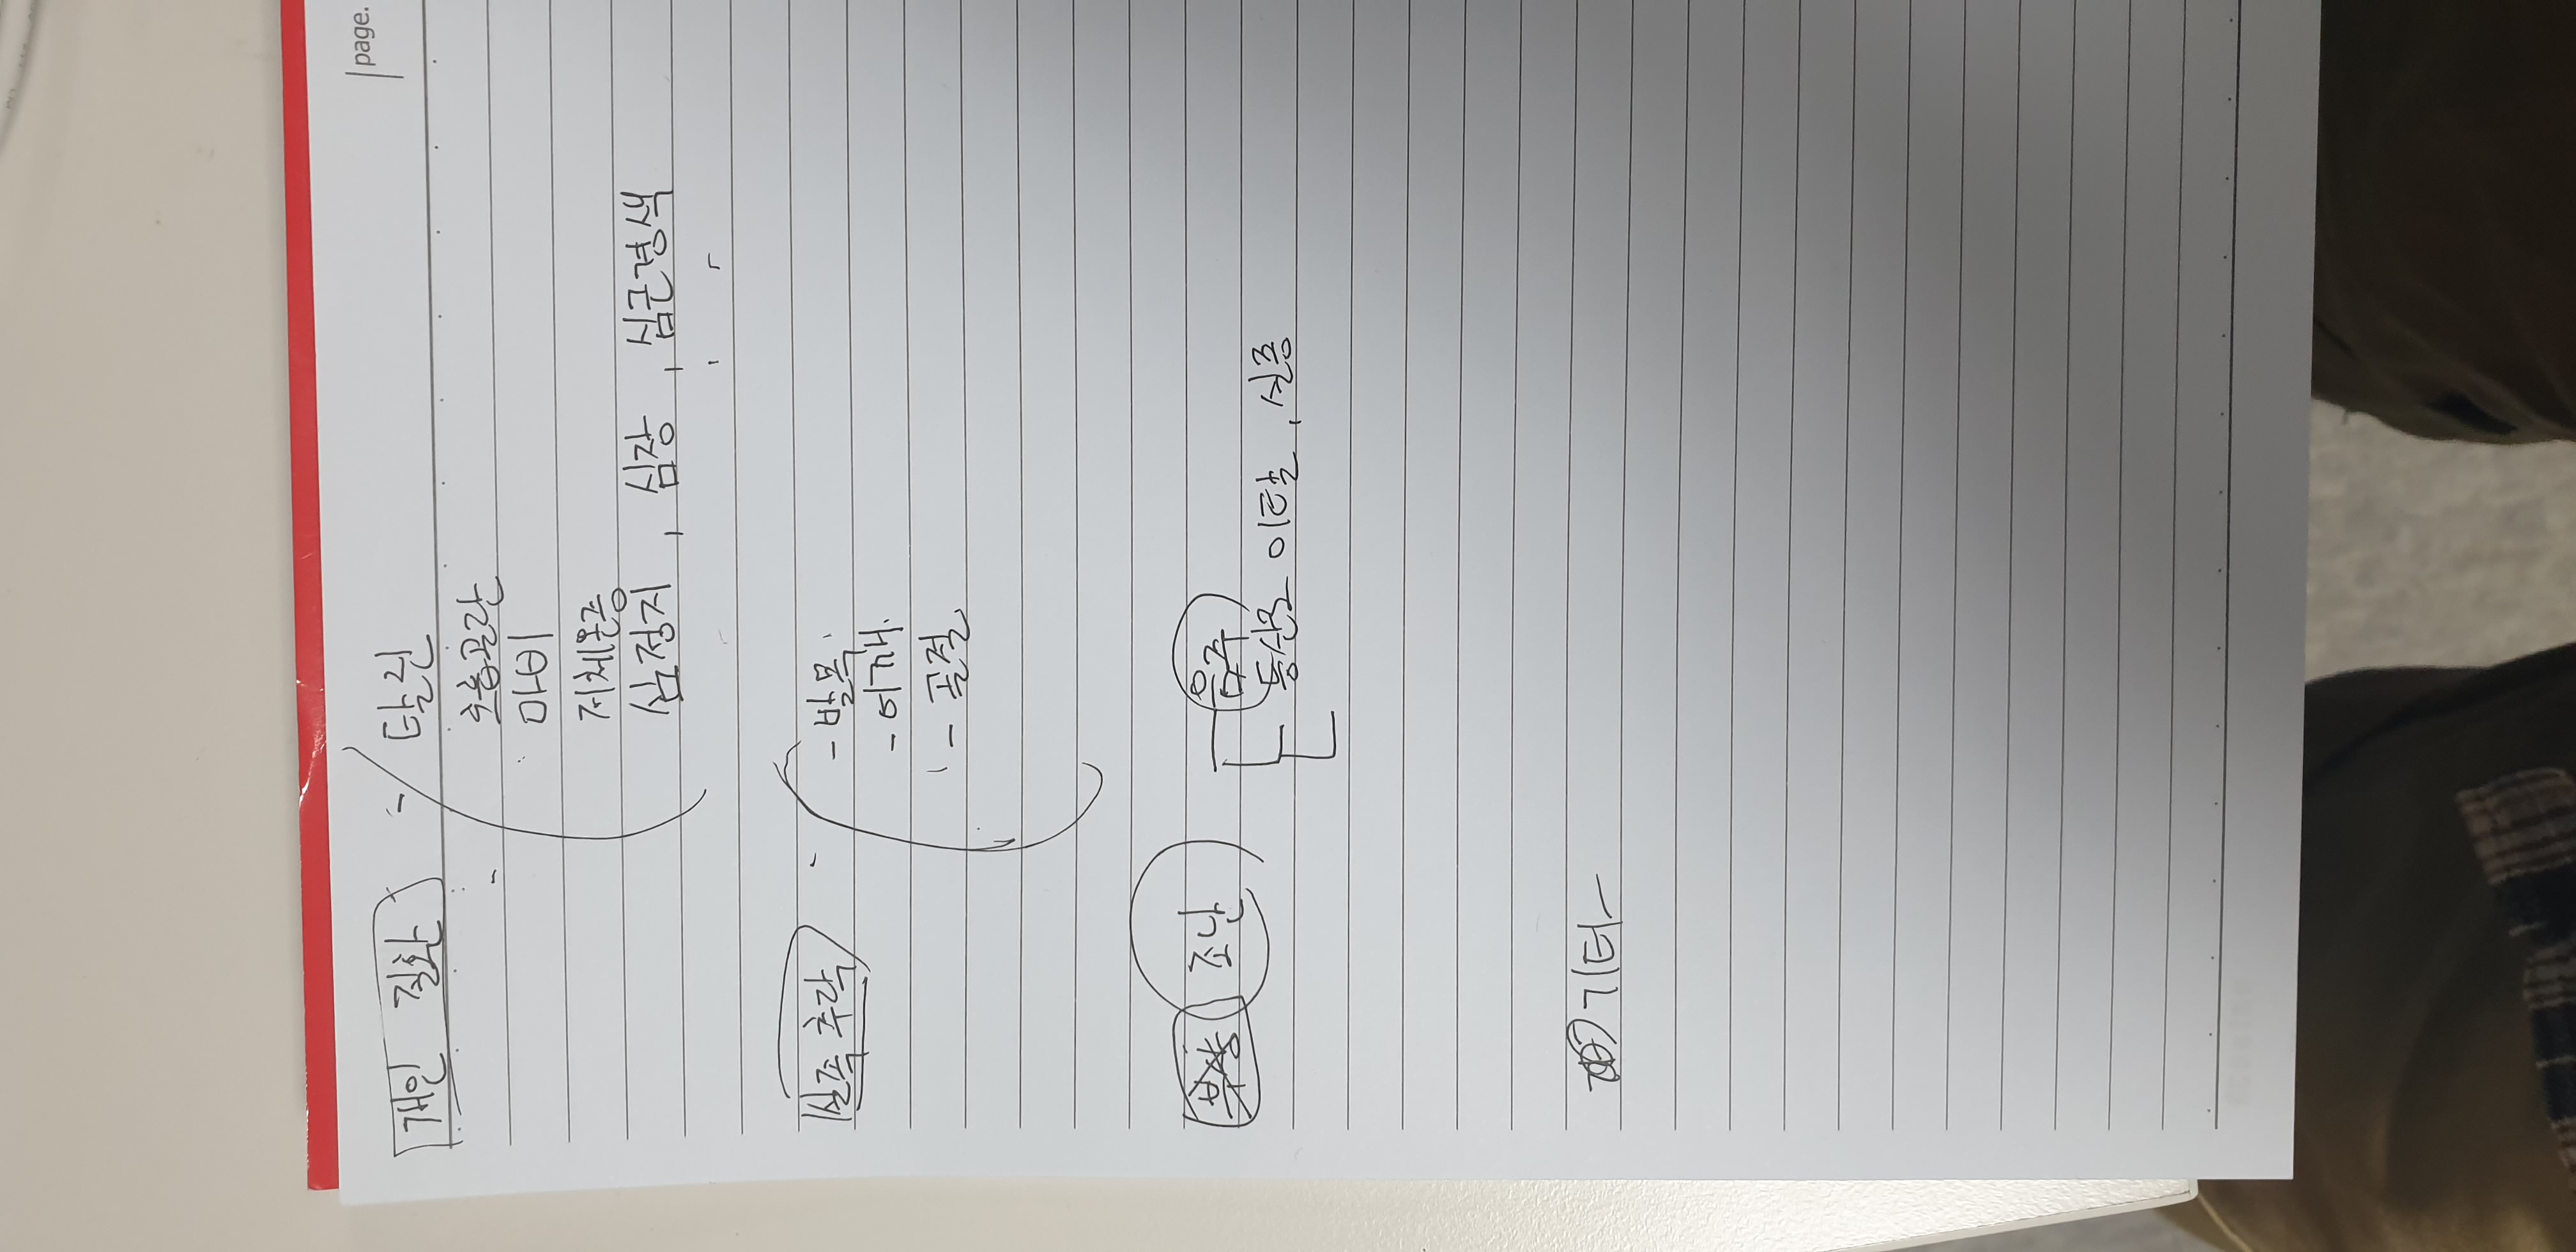 page.
개인 질환 - 탈진
호흡곤란
마비
저체온증
심정지, 심장, 심근경색
실족 추락 - - 발목
- 어깨
- 골절
조난 음주
등산로 이탈, 실종
기타